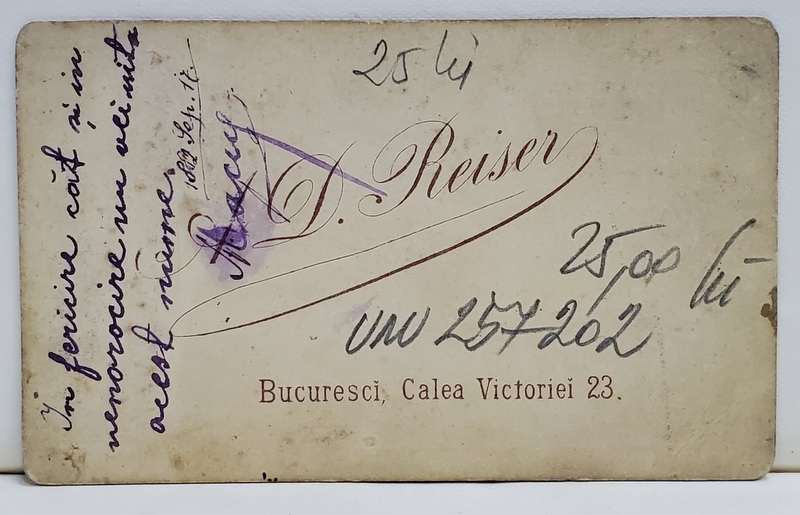 In fericire cât și in
nenorocire nu vei uita
acest nume.
1882 Sep. 17.
25 lei
D. Reiser
25,00 lei
257202
Bucuresci, Calea Victoriei 23.